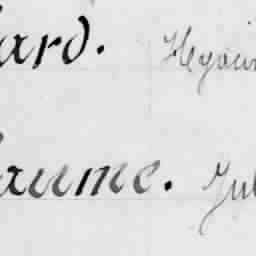 ard. Hyacin
aume. Jul